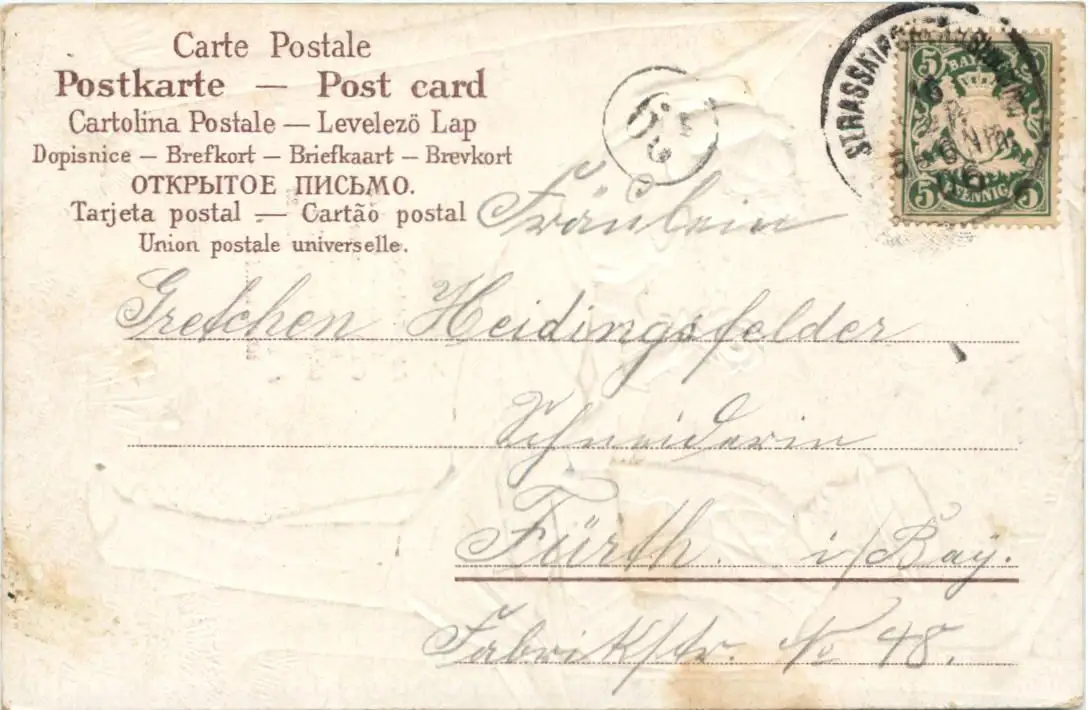 Carte Postale
Postkarte — Post card
Cartolina Postale — Levelező Lap
Dopisnice — Brefkort — Briefkaart — Brevkort
ОТКРЫТОЕ ПИСЬМО.
Tarjeta postal — Cartão postal
Union postale universelle.
5 5
BAYERN
PFENNIG
5 5
Fräulein
Gretchen Heidingsfelder
Schneiderin
Fürth. i/Bay.
Fabrikstr. No 48.